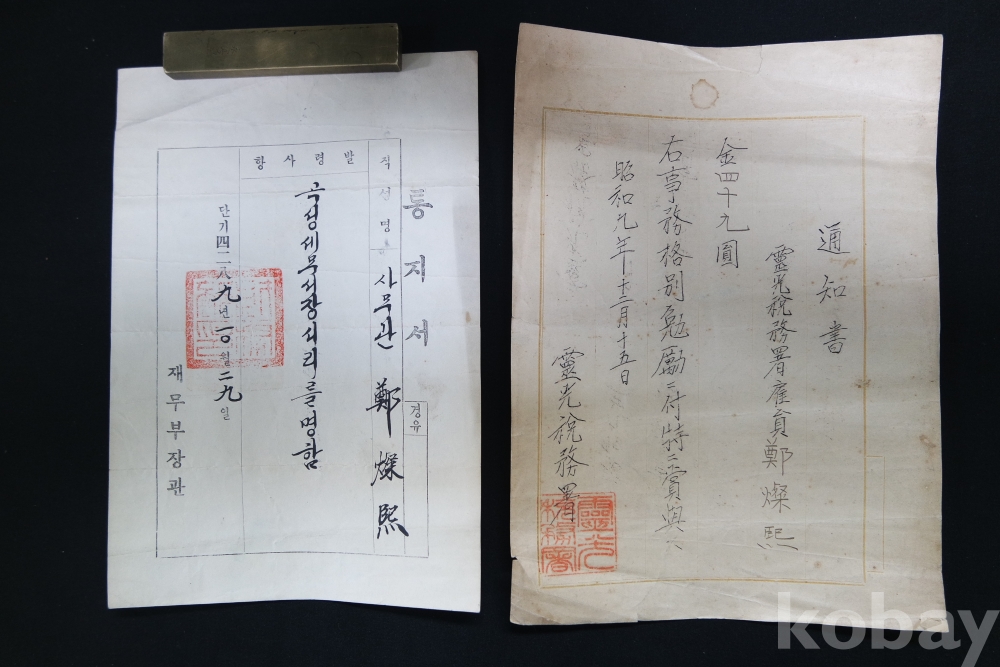 통지서
경유
직 성명 사무관 鄭燦熙
발령사항
곡성세무서장서리를 명함
단기四二八九年 一○월 二九일
재무부장관
通知書
靈光稅務署雇員 鄭燦熙
金四十九圓
右事務格別勉勵ニ付特ニ賞與ス
昭和元年十二月十五日
靈光稅務署
靈光稅務署
kobay